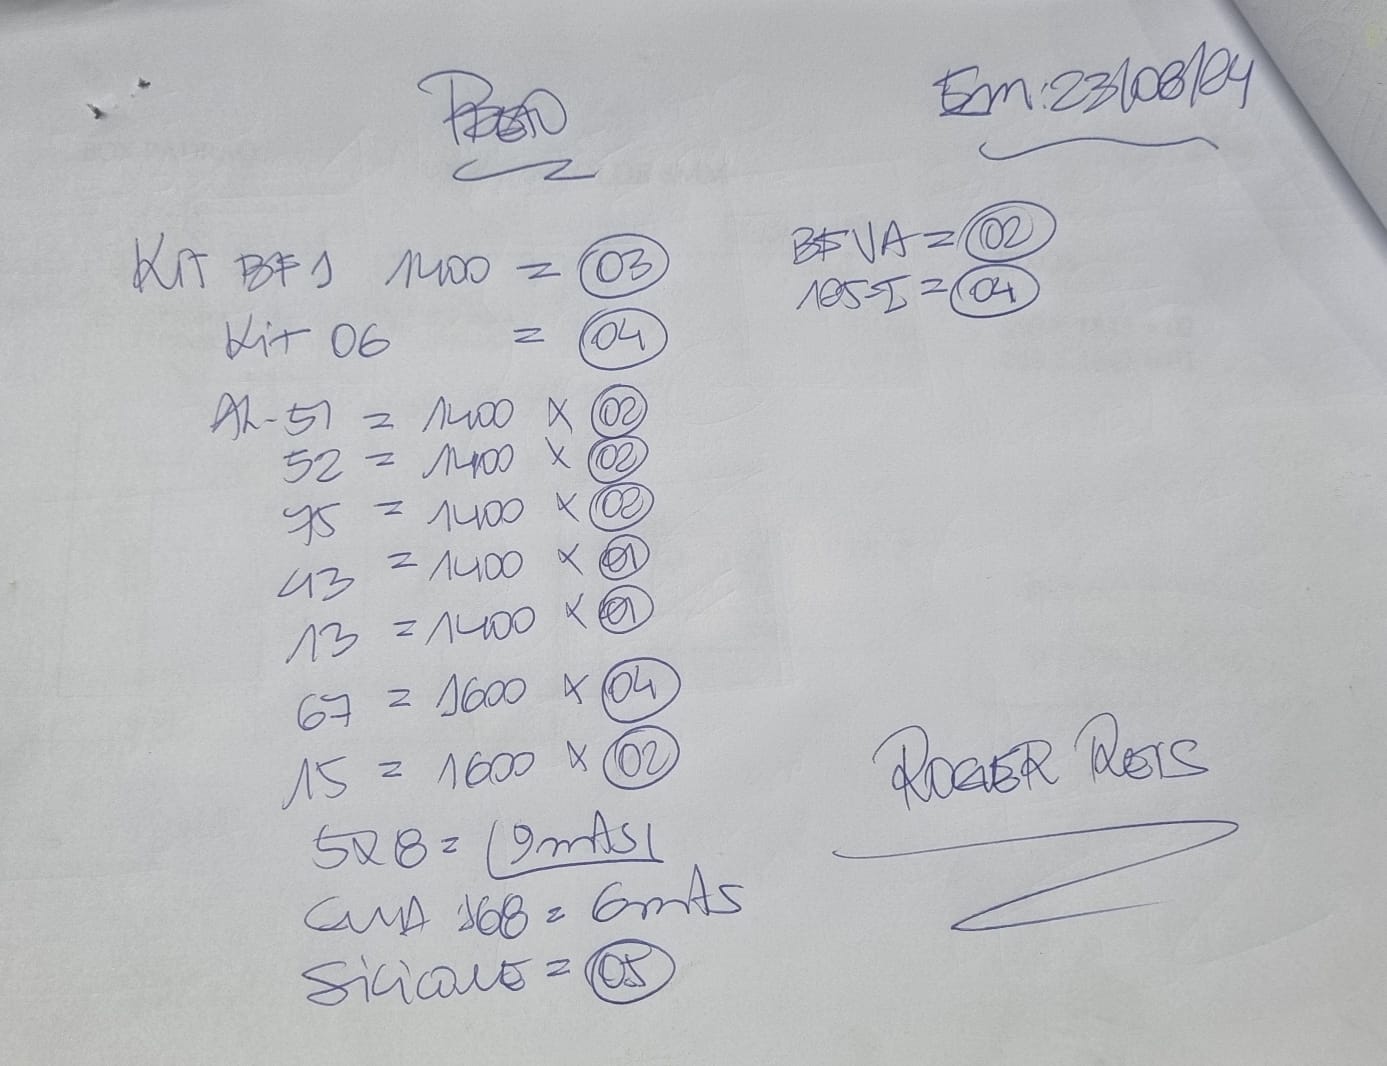 Em: 23/08/04
KIT BF1 1400 = 03
Kit 06 = 04
AL-51 = 1400 x 02
52 = 1400 x 02
75 = 1400 x 02
43 = 1400 x 01
13 = 1400 x 01
67 = 1600 x 04
15 = 1600 x 02
5x8 = 9mts
168 = 6mts
Silicone = 05
BFVA = 02
105-I = 04
ROGER REIS